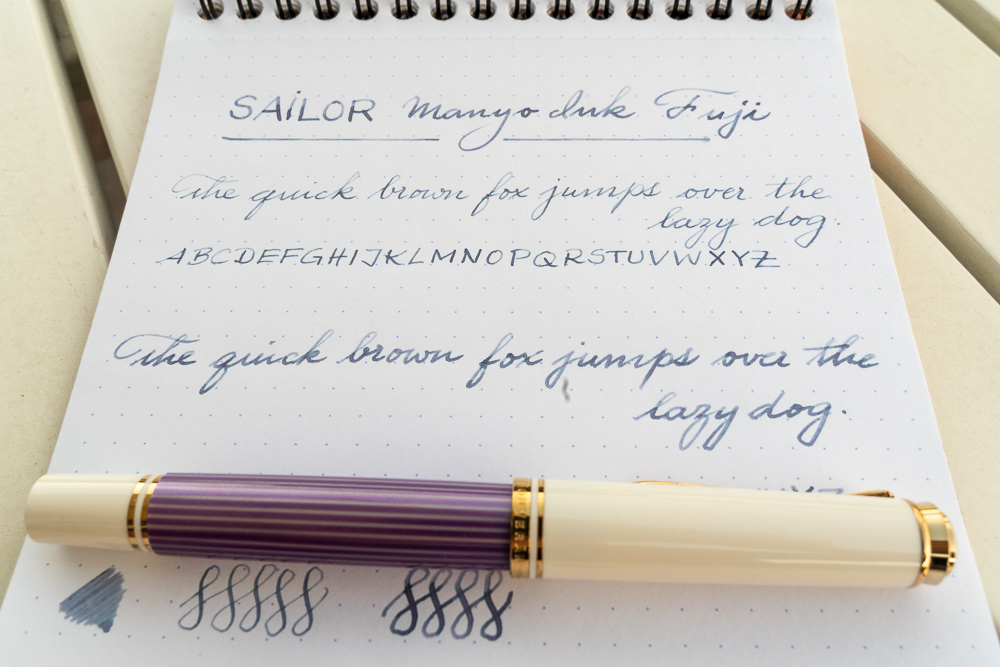 SAiLOR Manyo Ink Fuji
The quick brown fox jumps over the
lazy dog.
ABCDEFGHIJKLMNOPQRSTUVWXYZ
The quick brown fox jumps over the
lazy dog.